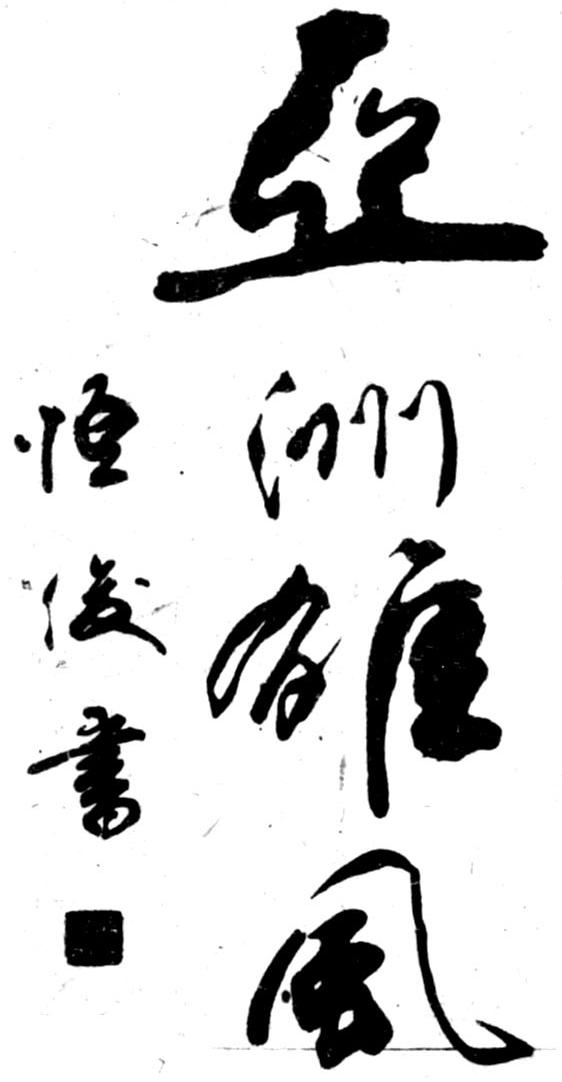 亞洲雄風
恒俊書